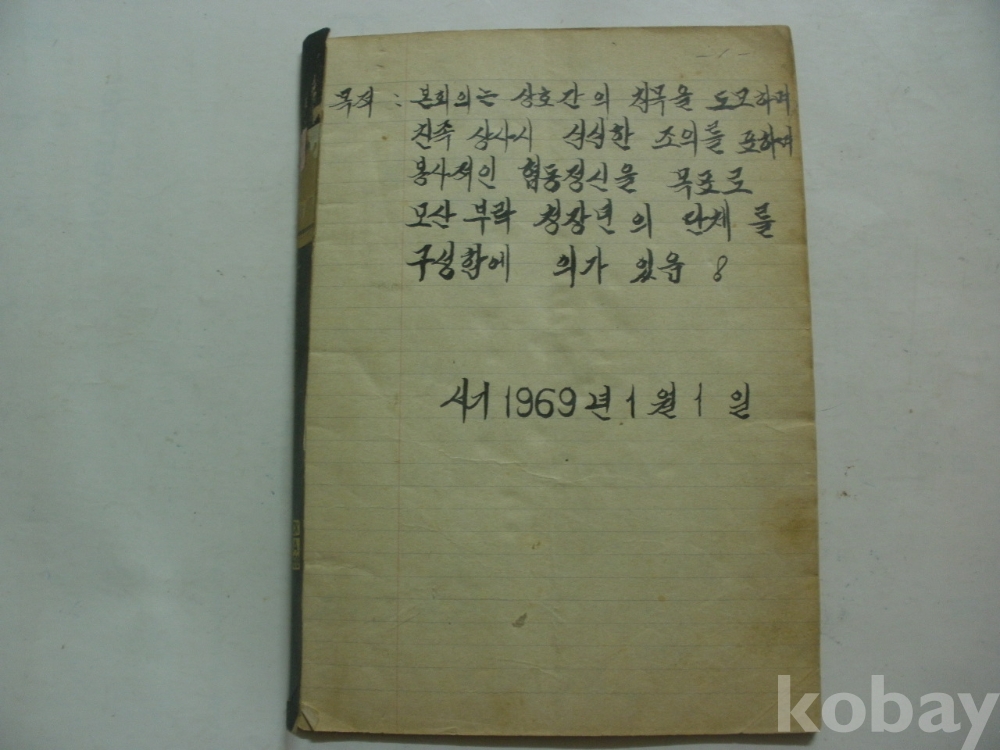 - 1 -
목적 : 본회의는 상호간의 친목을 도모하며
친족 상사시 심심한 조의를 표하며
봉사적인 협동정신을 목표로
모산 부락 청장년의 단체를
구성함에 의가 있음
서기 1969년 1월 1일
kobay